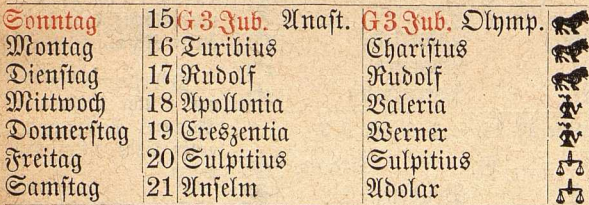 Sonntag 15 G 3 Jub. Anast. G 3 Jub. Olymp.
Montag 16 Turibius Charistus
Dienstag 17 Rudolf Rudolf
Mittwoch 18 Apollonia Valeria
Donnerstag 19 Creszentia Werner
Freitag 20 Sulpitius Sulpitius
Samstag 21 Anselm Adolar